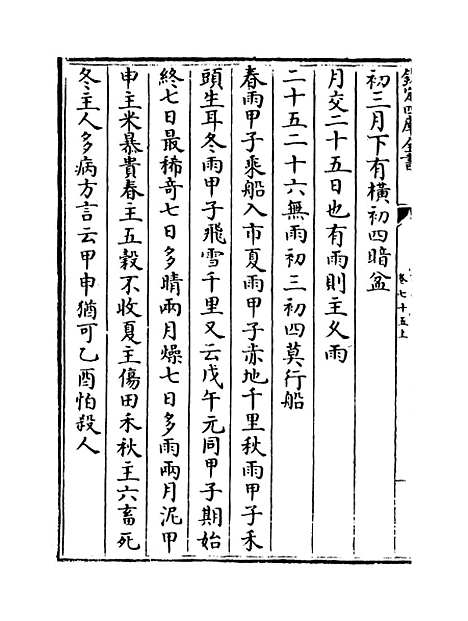 欽定四庫全書
卷七十五上
初三月下有橫初四暗盆
月交二十五日也有雨則主久雨
二十五二十六無雨初三初四莫行船
春雨甲子乘船入市夏雨甲子赤地千里秋雨甲子禾
頭生耳冬雨甲子飛雪千里又云戊午元同甲子期始
終七日最稀奇七日多晴兩月燥七日多雨兩月泥甲
申主米暴貴春主五穀不收夏主傷田禾秋主六畜死
冬主人多病方言云甲申猶可乙酉怕殺人